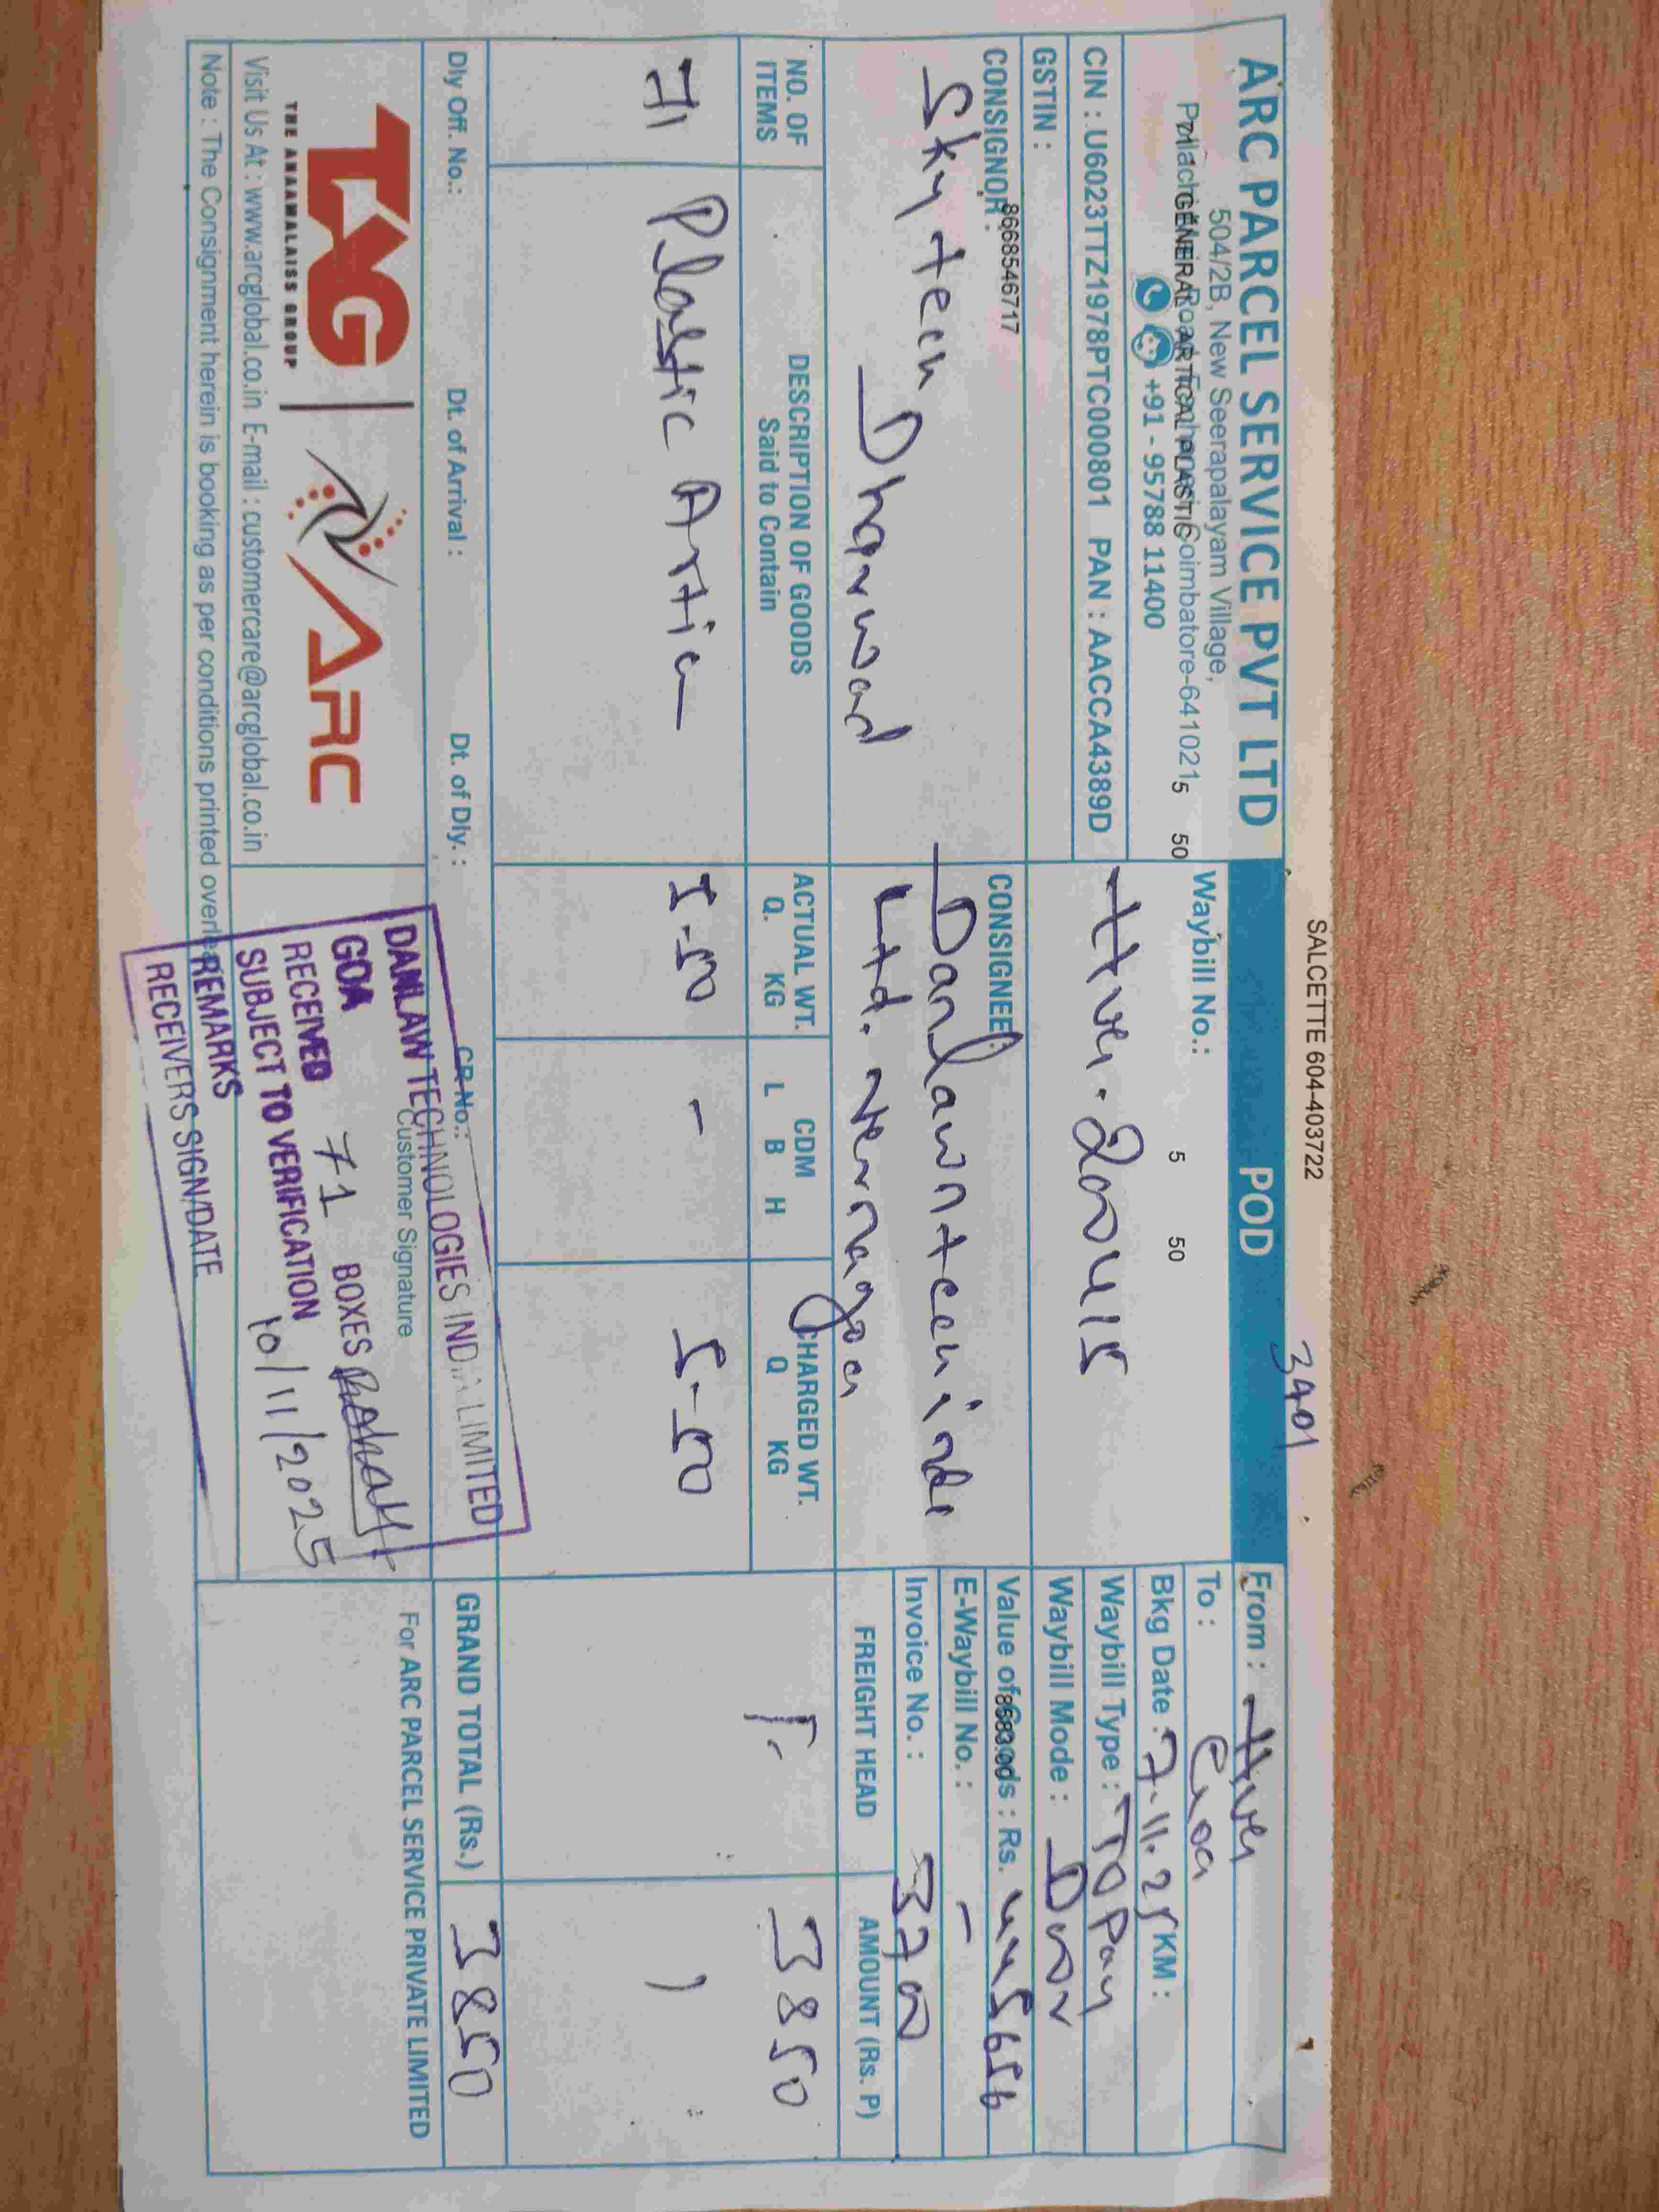 SALCETTE 604-403722
3401
ARC PARCEL SERVICE PVT LTD
504/2B, New Seerapalayam Village,
Coimbatore-641021
GENERAL ARTICAL PLASTIC
5 50
+91 - 95788 11400
CIN : U60231TZ1978PTC000801 PAN : AACCA4389D
GSTIN :
POD
Waybill No.:
5 50
From :
To : Goa
Bkg Date : 7-11-25 KM :
Waybill Type : TO Pay
Waybill Mode : Door
Value of Goods : Rs. 445656
8683.00
E-Waybill No. : -
Invoice No. : 3700
CONSIGNOR :
8668546717
Sky tech
Dharwad
CONSIGNEE :
Danlawntech indi
Ltd. Vernagoa
NO. OF ITEMS
DESCRIPTION OF GOODS
Said to Contain
ACTUAL WT.
Q. KG
CDM
L B H
CHARGED WT.
Q KG
FREIGHT HEAD
AMOUNT (Rs. P)
3850
71 Plastic Artic
-
5-50
GRAND TOTAL (Rs.) 3850
Dly Off. No.: Dt. of Arrival : Dt. of Dly. : GR No.:
TAG
THE ANAAMALAISS GROUP
ARC
Customer Signature
For ARC PARCEL SERVICE PRIVATE LIMITED
DANLAW TECHNOLOGIES INDIA LIMITED
GOA
RECEIVED 71 BOXES
SUBJECT TO VERIFICATION
10/11/2025
REMARKS
RECEIVERS SIGN/DATE
Visit Us At : www.arcglobal.co.in E-mail : customercare@arcglobal.co.in
Note : The Consignment herein is booking as per conditions printed